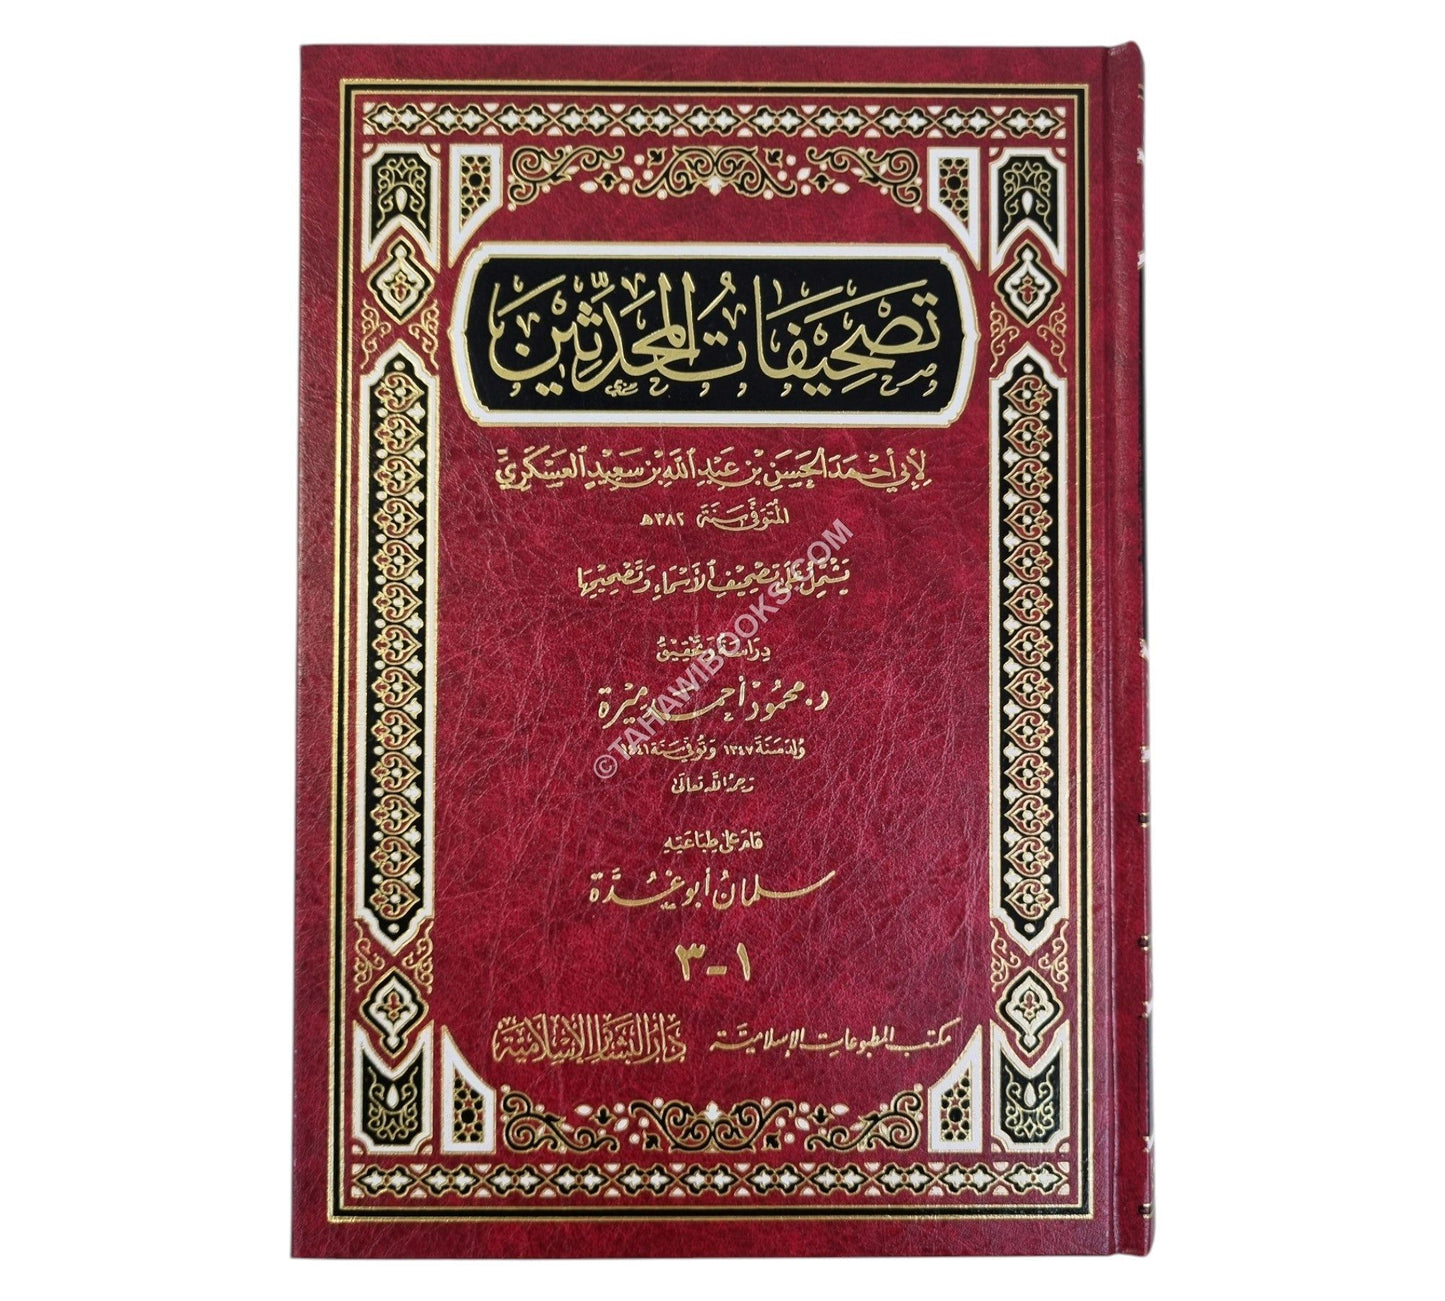 تَصْحِيفَاتُ المُحَدِّثِينَ
لِأَبِي أَحْمَدَ الحَسَنِ بْنِ عَبْدِ اللَّهِ بْنِ سَعِيدٍ العَسْكَرِيِّ
المُتَوَفَّى سَنَةَ ٣٨٢هـ
يَشْتَمِلُ عَلَى تَصْحِيفِ الأَسْمَاءِ وَتَصْحِيحِهَا
دِرَاسَةُ وَتَحْقِيقُ
د. محمُود أحمَد ميرَة
وُلِدَ سَنَةَ ١٣٤٧ وَتُوُفِّيَ سَنَةَ ١٤٤١
رَحِمَهُ اللَّه تَعَالَى
قَامَ عَلى طِبَاعَتِهِ
سلمان أبو غُدَّة
١-٣
مكتب المطبوعات الإسلاميَّة
دَارُ البَشَائِرِ الإِسْلَامِيَّة
©TAHAWIBOOKS.COM